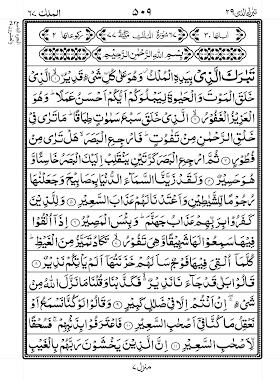 تبٰرك الذی ٢٩ ٥٠٩ الملك ٦٧
اٰیاتها ٣٠ ٦٧ سورة الملك مكیة ٧٧ ركوعاتها ٢
بِسْمِ اللّٰهِ الرَّحْمٰنِ الرَّحِیْمِ
تَبٰرَكَ الَّذِیْ بِیَدِهِ الْمُلْكُ وَهُوَ عَلٰی كُلِّ شَیْءٍ قَدِیْرُ ۙ﴿۱﴾ الَّذِیْ
خَلَقَ الْمَوْتَ وَالْحَیٰوةَ لِیَبْلُوَكُمْ اَیُّكُمْ اَحْسَنُ عَمَلًا ؕ وَهُوَ
الْعَزِیْزُ الْغَفُوْرُ ۙ﴿۲﴾ الَّذِیْ خَلَقَ سَبْعَ سَمٰوٰتٍ طِبَاقًا ؕ مَا تَرٰی فِیْ
خَلْقِ الرَّحْمٰنِ مِنْ تَفٰوُتٍ ؕ فَارْجِعِ الْبَصَرَ ۙ هَلْ تَرٰی مِنْ
فُطُوْرٍ ﴿۳﴾ ثُمَّ ارْجِعِ الْبَصَرَ كَرَّتَیْنِ یَنْقَلِبْ اِلَیْكَ الْبَصَرُ خَاسِئًا وَّ
هُوَ حَسِیْرٌ ﴿۴﴾ وَلَقَدْ زَیَّنَّا السَّمَآءَ الدُّنْیَا بِمَصَابِیْحَ وَجَعَلْنٰهَا
رُجُوْمًا لِّلشَّیٰطِیْنِ وَاَعْتَدْنَا لَهُمْ عَذَابَ السَّعِیْرِ ﴿۵﴾ وَلِلَّذِیْنَ
كَفَرُوْا بِرَبِّهِمْ عَذَابُ جَهَنَّمَ ؕ وَبِئْسَ الْمَصِیْرُ ﴿۶﴾ اِذَاۤ اُلْقُوْا
فِیْهَا سَمِعُوْا لَهَا شَهِیْقًا وَّهِیَ تَفُوْرُ ۙ﴿۷﴾ تَكَادُ تَمَیَّزُ مِنَ الْغَیْظِ ؕ
كُلَّمَاۤ اُلْقِیَ فِیْهَا فَوْجٌ سَاَلَهُمْ خَزَنَتُهَاۤ اَلَمْ یَاْتِكُمْ نَذِیْرٌ ﴿۸﴾
قَالُوْا بَلٰی قَدْ جَآءَنَا نَذِیْرٌ ۙ فَكَذَّبْنَا وَقُلْنَا مَا نَزَّلَ اللّٰهُ مِنْ
شَیْءٍ ۖ اِنْ اَنْتُمْ اِلَّا فِیْ ضَلٰلٍ كَبِیْرٍ ﴿۹﴾ وَقَالُوْا لَوْ كُنَّا نَسْمَعُ اَوْ
نَعْقِلُ مَا كُنَّا فِیْۤ اَصْحٰبِ السَّعِیْرِ ﴿۱۰﴾ فَاعْتَرَفُوْا بِذَنْۢبِهِمْ ۚ فَسُحْقًا
لِّاَصْحٰبِ السَّعِیْرِ ﴿۱۱﴾ اِنَّ الَّذِیْنَ یَخْشَوْنَ رَبَّهُمْ بِالْغَیْبِ
منزل ٧